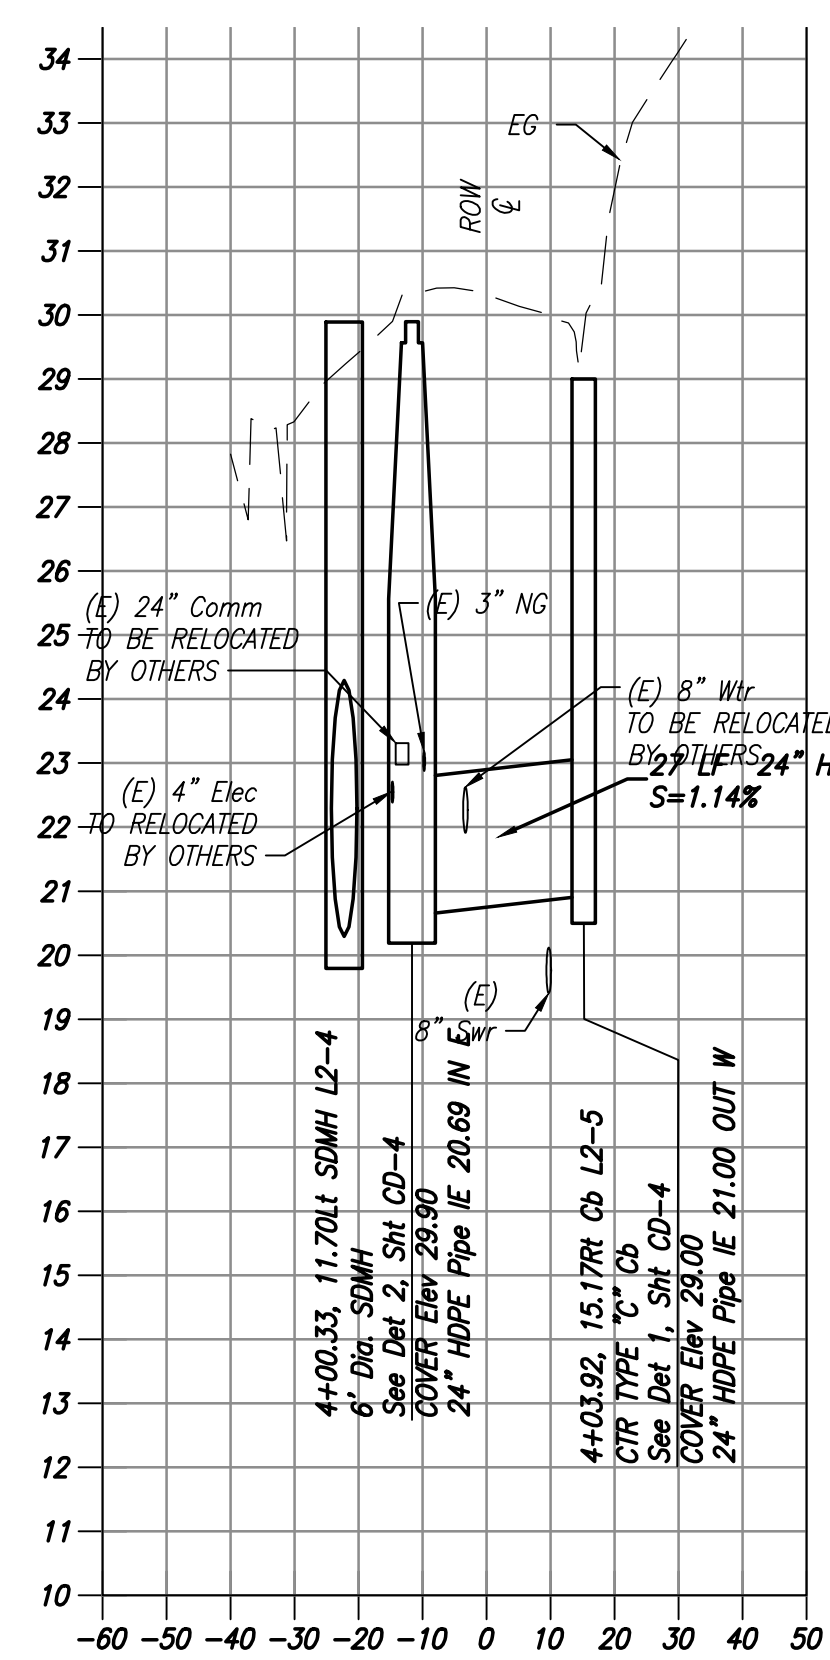 34
33
32
31
30
29
28
27
26
25
24
23
22
21
20
19
18
17
16
15
14
13
12
11
10
EG
ROW
℄
(E) 24" Comm
TO BE RELOCATED
BY OTHERS
(E) 3" NG
(E) 8" Wtr
TO BE RELOCATED
BY OTHERS
27 LF 24" H
S=1.14%
(E) 4" Elec
TO RELOCATED
BY OTHERS
(E)
8" Swr
4+00.33, 11.70Lt SDMH L2-4
6' Dia. SDMH
See Det 2, Sht CD-4
COVER Elev 29.90
24" HDPE Pipe IE 20.69 IN E
4+03.92, 15.17Rt Cb L2-5
CTR TYPE "C" Cb
See Det 1, Sht CD-4
COVER Elev 29.00
24" HDPE Pipe IE 21.00 OUT W
-60 -50 -40 -30 -20 -10 0 10 20 30 40 50